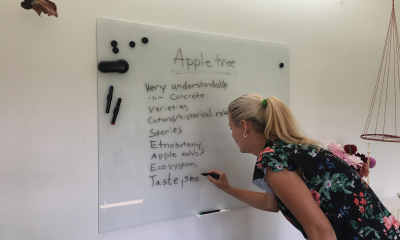 Apple tree
Very understandable
-"- Concrete
Varieties
Cultural/historical rel
Stories
Etnobotany
Apple exhibit
Ecosystem
Taste, sme